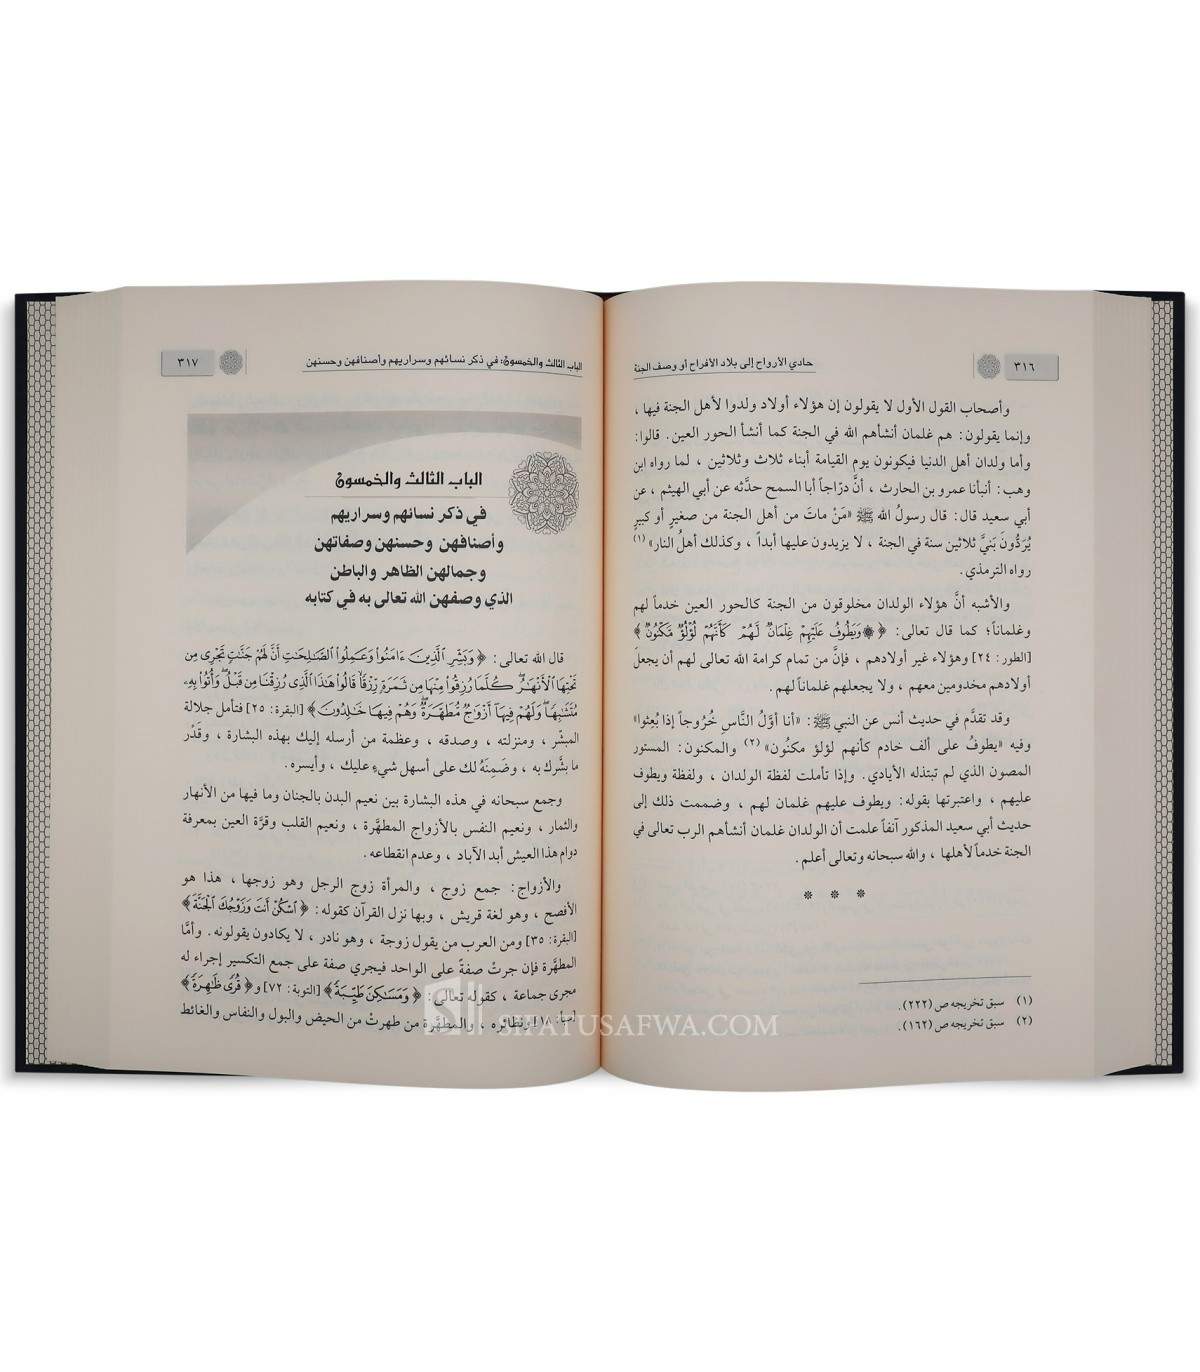 ٣١٦
حادي الأرواح إلى بلاد الأفراح أو وصف الجنة
وأصحاب القول الأول لا يقولون إن هؤلاء أولاد ولدوا لأهل الجنة فيها ،
وإنما يقولون: هم غلمان أنشأهم الله في الجنة كما أنشأ الحور العين. قالوا:
وأما ولدان أهل الدنيا فيكونون يوم القيامة أبناء ثلاث وثلاثين ، لما رواه ابن
وهب: أنبأنا عمرو بن الحارث ، أنَّ درّاجاً أبا السمح حدَّثه عن أبي الهيثم ، عن
أبي سعيد قال: قال رسولُ الله ﷺ «مَنْ ماتَ من أهل الجنة من صغيرٍ أو كبيرٍ
يُرَدُّونَ بَنيَّ ثلاثين سنة في الجنة ، لا يزيدون عليها أبداً ، وكذلك أهلُ النار» (١)
رواه الترمذي.
والأشبه أنَّ هؤلاء الولدان مخلوقون من الجنة كالحور العين خدماً لهم
وغلماناً؛ كما قال تعالى: ﴿ ۞ وَيَطُوفُ عَلَيْهِمْ غِلْمَانٌ لَّهُمْ كَأَنَّهُمْ لُؤْلُؤٌ مَّكْنُونٌ ﴾
[الطور: ٢٤] وهؤلاء غير أولادهم ، فإنَّ من تمام كرامة الله تعالى لهم أن يجعلَ
أولادهم مخدومين معهم ، ولا يجعلهم غلماناً لهم.
وقد تقدَّم في حديث أنس عن النبي ﷺ: «أنا أوَّلُ النَّاسِ خُرُوجاً إذا بُعِثوا»
وفيه «يطوفُ على ألف خادم كأنهم لؤلؤ مكنُون» (٢) والمكنون: المستور
المصون الذي لم تبتذله الأيادي. وإذا تأملت لفظة الولدان ، ولفظة ويطوف
عليهم ، واعتبرتها بقوله: ويطوف عليهم غلمان لهم ، وضممت ذلك إلى
حديث أبي سعيد المذكور آنفاً علمت أن الولدان غلمان أنشأهم الرب تعالى في
الجنة خدماً لأهلها ، والله سبحانه وتعالى أعلم.
* * *
(١) سبق تخريجه ص (٢٢٢).
(٢) سبق تخريجه ص (١٦٢).
الباب الثالث والخمسون: في ذكر نسائهم وسراريهم وأصنافهن وحسنهن
٣١٧
الباب الثالث والخمسون
في ذكر نسائهم وسراريهم
وأصنافهن وحسنهن وصفاتهن
وجمالهن الظاهر والباطن
الذي وصفهن الله تعالى به في كتابه
قال الله تعالى: ﴿ وَبَشِّرِ الَّذِينَ ءَامَنُوا وَعَمِلُوا الصَّالِحَاتِ أَنَّ لَهُمْ جَنَّاتٍ تَجْرِي مِن
تَحْتِهَا الْأَنْهَارُ كُلَّمَا رُزِقُوا مِنْهَا مِن ثَمَرَةٍ رِّزْقًا قَالُوا هَٰذَا الَّذِي رُزِقْنَا مِن قَبْلُ وَأُتُوا بِهِ
مُتَشَابِهًا وَلَهُمْ فِيهَا أَزْوَاجٌ مُّطَهَّرَةٌ وَهُمْ فِيهَا خَالِدُونَ ﴾ [البقرة: ٢٥] فتأمل جلالة
المبشّر ، ومنزلته ، وصدقه ، وعظمة من أرسله إليك بهذه البشارة ، وقَدْر
ما بشَّرك به ، وضَمِنَهُ لك على أسهل شيءٍ عليك ، وأيسره.
وجمع سبحانه في هذه البشارة بين نعيم البدن بالجنان وما فيها من الأنهار
والثمار ، ونعيم النفس بالأزواج المطهَّرة ، ونعيم القلب وقرَّة العين بمعرفة
دوام هذا العيش أبد الآباد ، وعدم انقطاعه.
والأزواج: جمع زوج ، والمرأة زوج الرجل وهو زوجها ، هذا هو
الأفصح ، وهو لغة قريش ، وبها نزل القرآن كقوله: ﴿ اسْكُنْ أَنتَ وَزَوْجُكَ الْجَنَّةَ ﴾
[البقرة: ٣٥] ومن العرب من يقول زوجة ، وهو نادر ، لا يكادون يقولونه. وأمَّا
المطهَّرة فإن جرتْ صفةً على الواحد فيجري صفة على جمع التكسير إجراء له
مجرى جماعة ، كقوله تعالى: ﴿ وَمَسَاكِنَ طَيِّبَةً ﴾ [التوبة: ٧٢] و﴿ قُرًى ظَاهِرَةً ﴾
[سبأ: ١٨] ونظائره ، والمطهَّرة من طهرتْ من الحيض والبول والنفاس والغائط
SIFATUSAFWA.COM